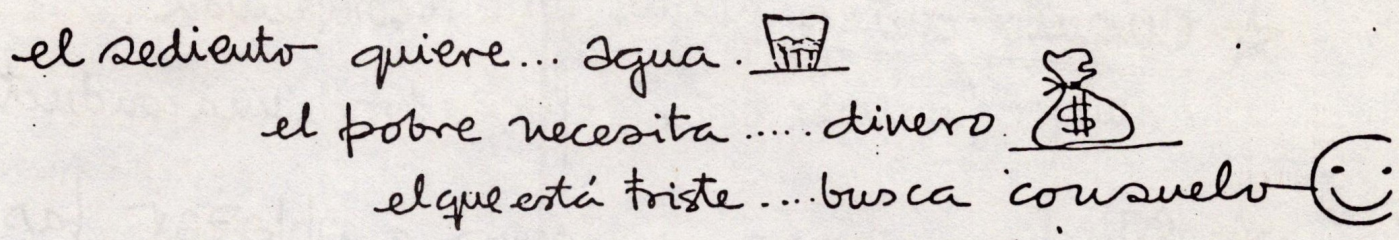 el sediento quiere... agua.
el pobre necesita ..... dinero $
el que está triste .... busca consuelo